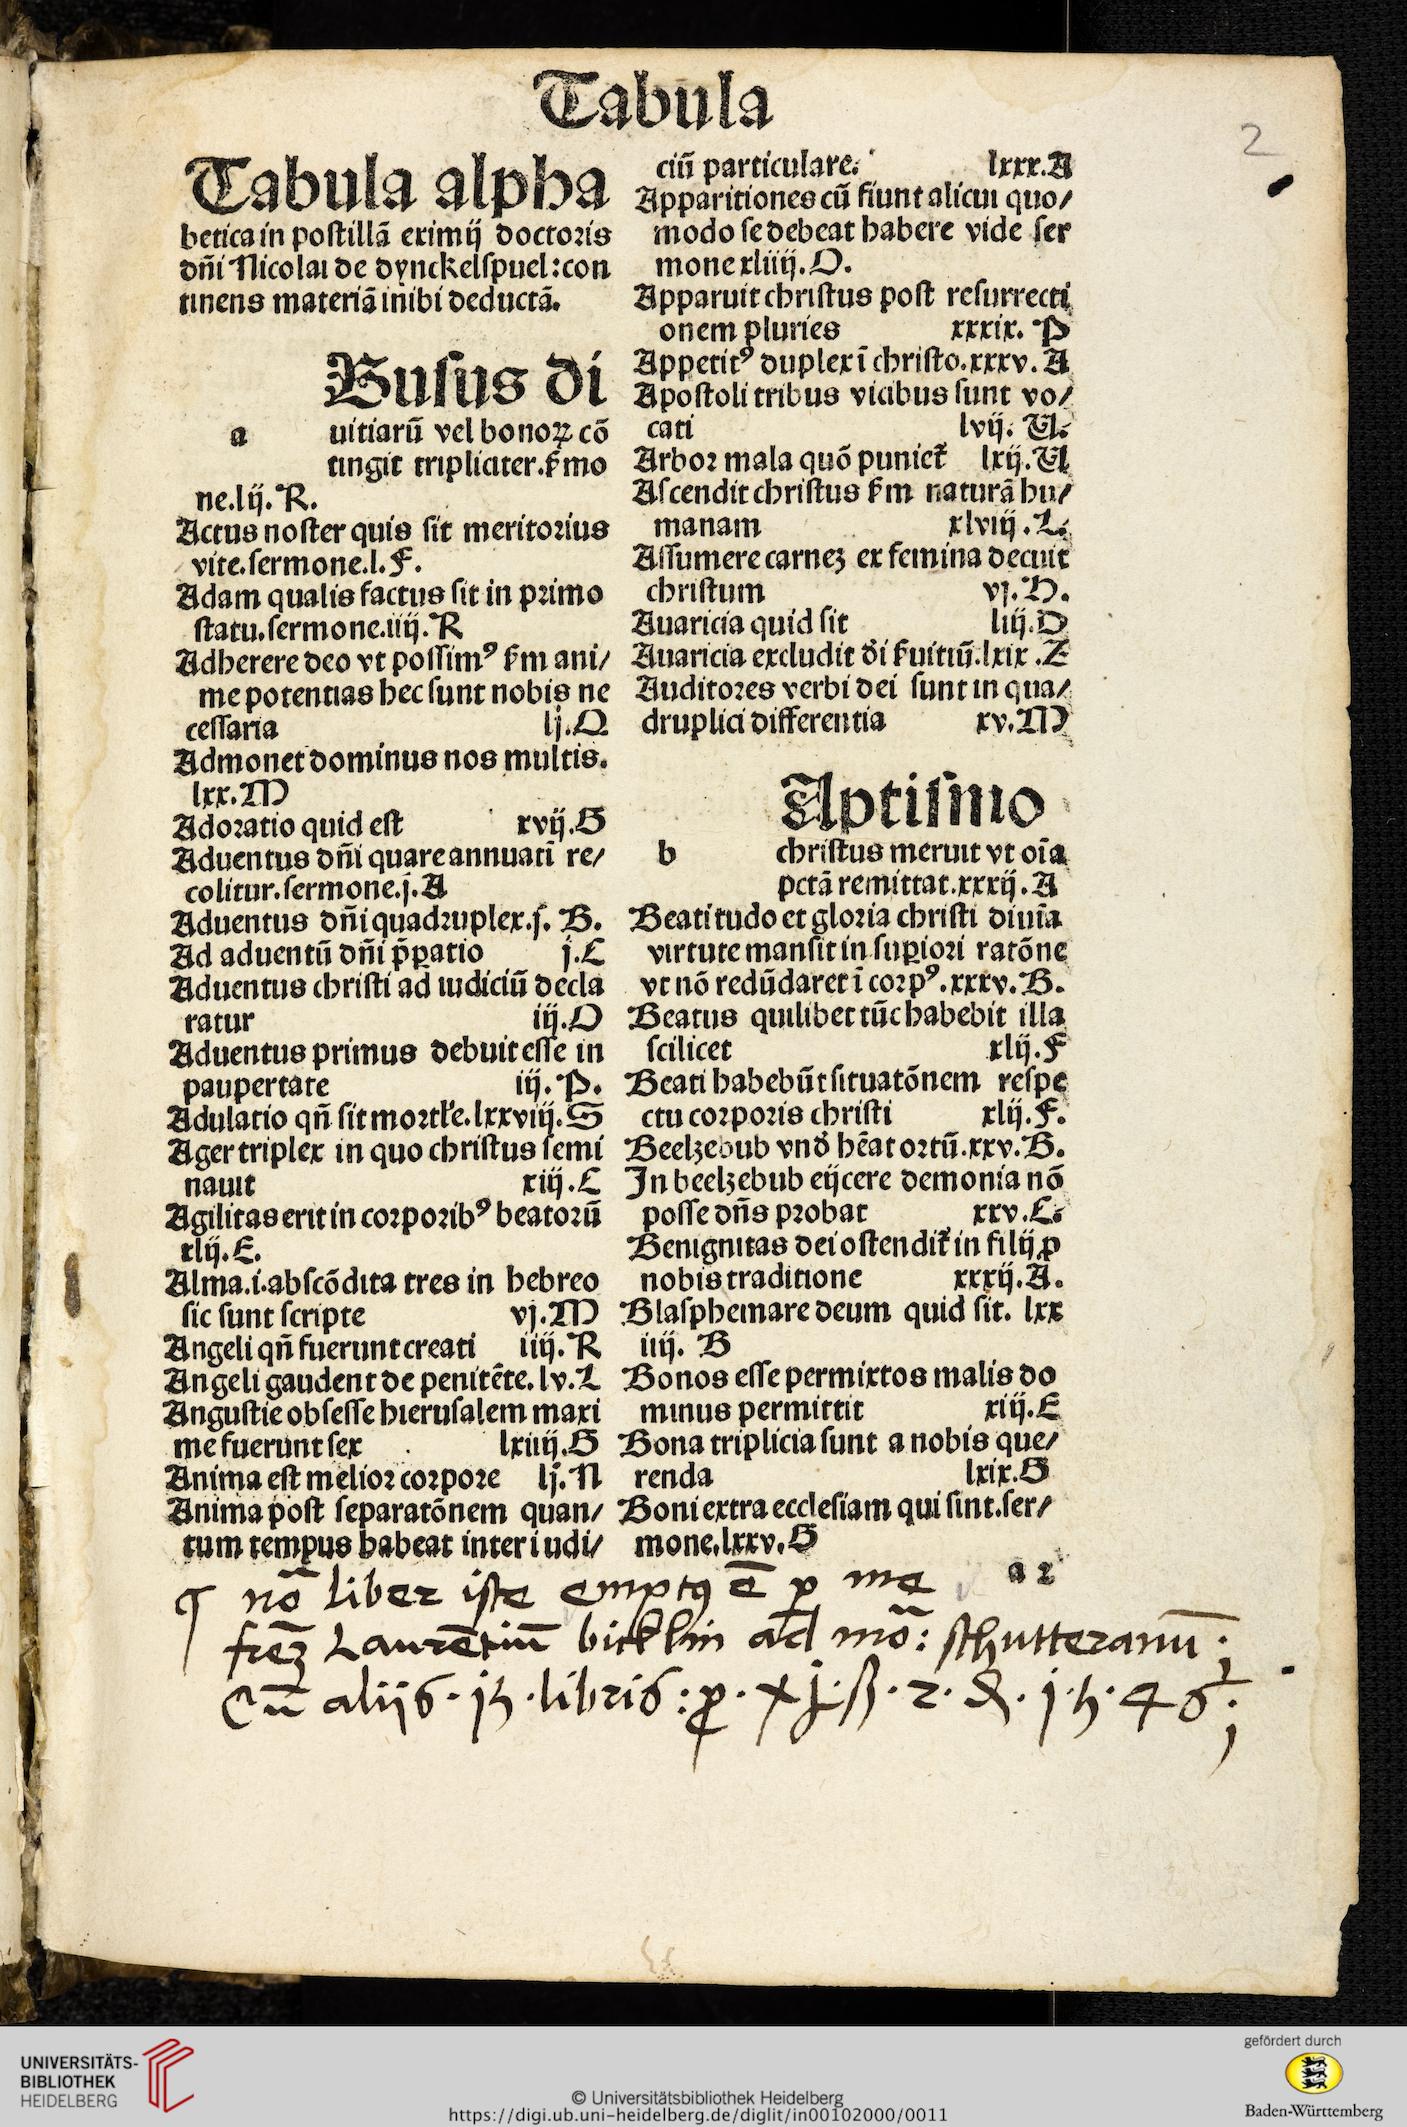 Tabula
2
Tabula alpha
betica in postillā eximij doctoris
dn̄i Nicolai de dynckelspuel: con
tinens materiā inibi deductā.
Busus di
a
uitiarū vel bonoꝝ cō
tingit tripliciter. ẜmo
ne. lij. R.
Actus noster quis sit meritorius
vite. sermone. l. F.
Adam qualis factus sit in primo
statu. sermone. iiij. R
Adherere deo vt possimꝰ ẜm ani/
me potentias hec sunt nobis ne
cessaria lj. O
Admonet dominus nos multis.
lxx. M
Adoratio quid est xvij. G
Aduentus dn̄i quare annuati re/
colitur. sermone. j. A
Aduentus dn̄i quadruplex. j. B.
Ad aduentū dn̄i p̄ꝑatio j. C
Aduentus christi ad iudiciū decla
ratur iij. O
Aduentus primus debuit esse in
paupertate iij. P.
Adulatio qn̄ sit mortl'e. lxxviij. S
Ager triplex in quo christus semi
nauit xiij. C
Agilitas erit in corporibꝰ beatorū
xlij. E.
Alma. i. abscōdita tres in hebreo
sic sunt scripte vj. M
Angeli qn̄ fuerunt creati iiij. R
Angeli gaudent de penitēte. lv. L
Angustie obsesse hierusalem maxi
me fuerunt sex lxiiij. G
Anima est melior corpore lj. N
Anima post separatōnem quan/
tum tempus habeat inter iudi/
ciū particulare. lxxx. A
Apparitiones cū fiunt alicui quo/
modo se debeat habere vide ser
mone xliiij. O.
Apparuit christus post resurrecti
onem pluries xxxix. P
Appetitꝰ duplex ī christo. xxxv. A
Apostoli tribus vicibus sunt vo/
cati lvij. U.
Arbor mala quō punietr̄ lxij. U
Ascendit christus ẜm naturā hu/
manam xlviij. L.
Assumere carneꝫ ex femina decuit
christum vj. H.
Auaricia quid sit liij. D
Auaricia excludit dei ẜuitiū. lxix. Z
Auditores verbi dei sunt in qua/
druplici differentia xv. M
Aptismo
b
christus meruit vt oīa
pctā remittat. xxxij. A
Beatitudo et gloria christi diuīa
virtute mansit in suꝑiori ratōne
vt nō redūdaret ī corpꝰ. xxxv. B.
Beatus quilibet tūc habebit illa
scilicet xlij. F
Beati habebūt situatōnem respe
ctu corporis christi xlij. F.
Beelzebub vnd̓ hēat ortū. xxv. B.
In beelzebub eijcere demonia nō
posse dn̄s probat xxv. C.
Benignitas dei ostenditr̄ in filij ꝓ
nobis traditione xxxij. A.
Blasphemare deum quid sit. lxx
iiij. B
Bonos esse permixtos malis do
minus permittit xiij. E
Bona triplicia sunt a nobis que/
renda lxix. G
Boni extra ecclesiam qui sint. ser/
mone. lxxv. G
a 2
nō liber iste emptꝰ ē ꝑ me
frēꝫ Laurētiū bicklin ad mō: schutteranū
Cū aliis · iꝫ · libris: ꝓ · xj · ß · 2 · ₰ ·
UNIVERSITÄTS-
BIBLIOTHEK
HEIDELBERG
© Universitätsbibliothek Heidelberg
https://digi.ub.uni-heidelberg.de/diglit/in00102000/0011
gefördert durch
Baden-Württemberg